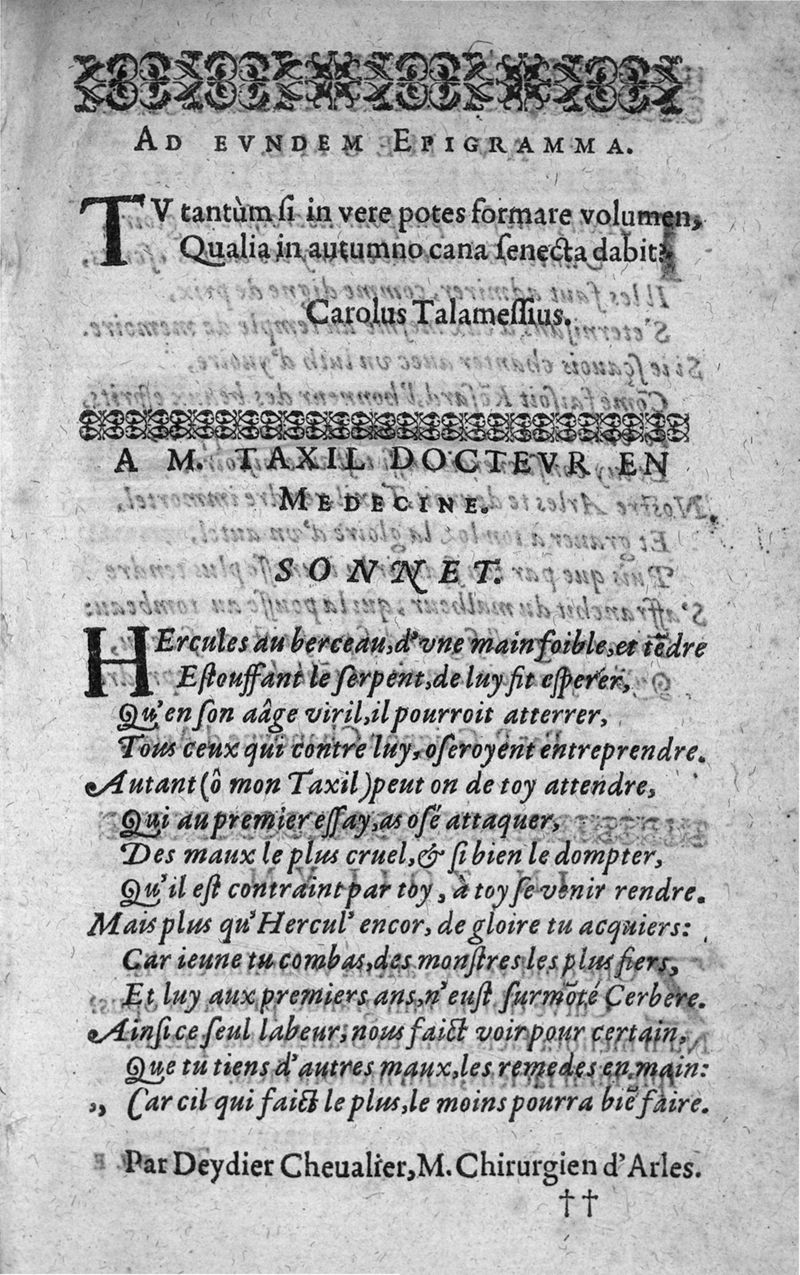 AD EVNDEM EPIGRAMMA.
TV tantùm ſi in vere potes formare volumen,
Qualia in autumno cana ſenecta dabit?
Carolus Talameſſius.
A M. TAXIL DOCTEVR EN
MEDECINE.
SONNET.
HErcules au berceau, d'vne main foible, et tẽdre
Eſtouffant le ſerpent, de luy fit eſperer,
Qu'en ſon aâge viril, il pourroit atterrer,
Tous ceux qui contre luy, oſeroyent entreprendre.
Autant (ô mon Taxil) peut on de toy attendre,
Qui au premier eſſay, as oſé attaquer,
Des maux le plus cruel, & ſi bien le dompter,
Qu'il eſt contraint par toy, à toy ſe venir rendre.
Mais plus qu'Hercul' encor, de gloire tu acquiers:
Car ieune tu combas, des monſtres les plus fiers,
Et luy aux premiers ans, n'euſt ſurmõté Cerbere.
Ainſi ce ſeul labeur, nous faict voir pour certain,
Que tu tiens d'autres maux, les remedes en main:
„ Car cil qui faict le plus, le moins pourra biẽ faire.
Par Deydier Cheualier, M. Chirurgien d'Arles.
††